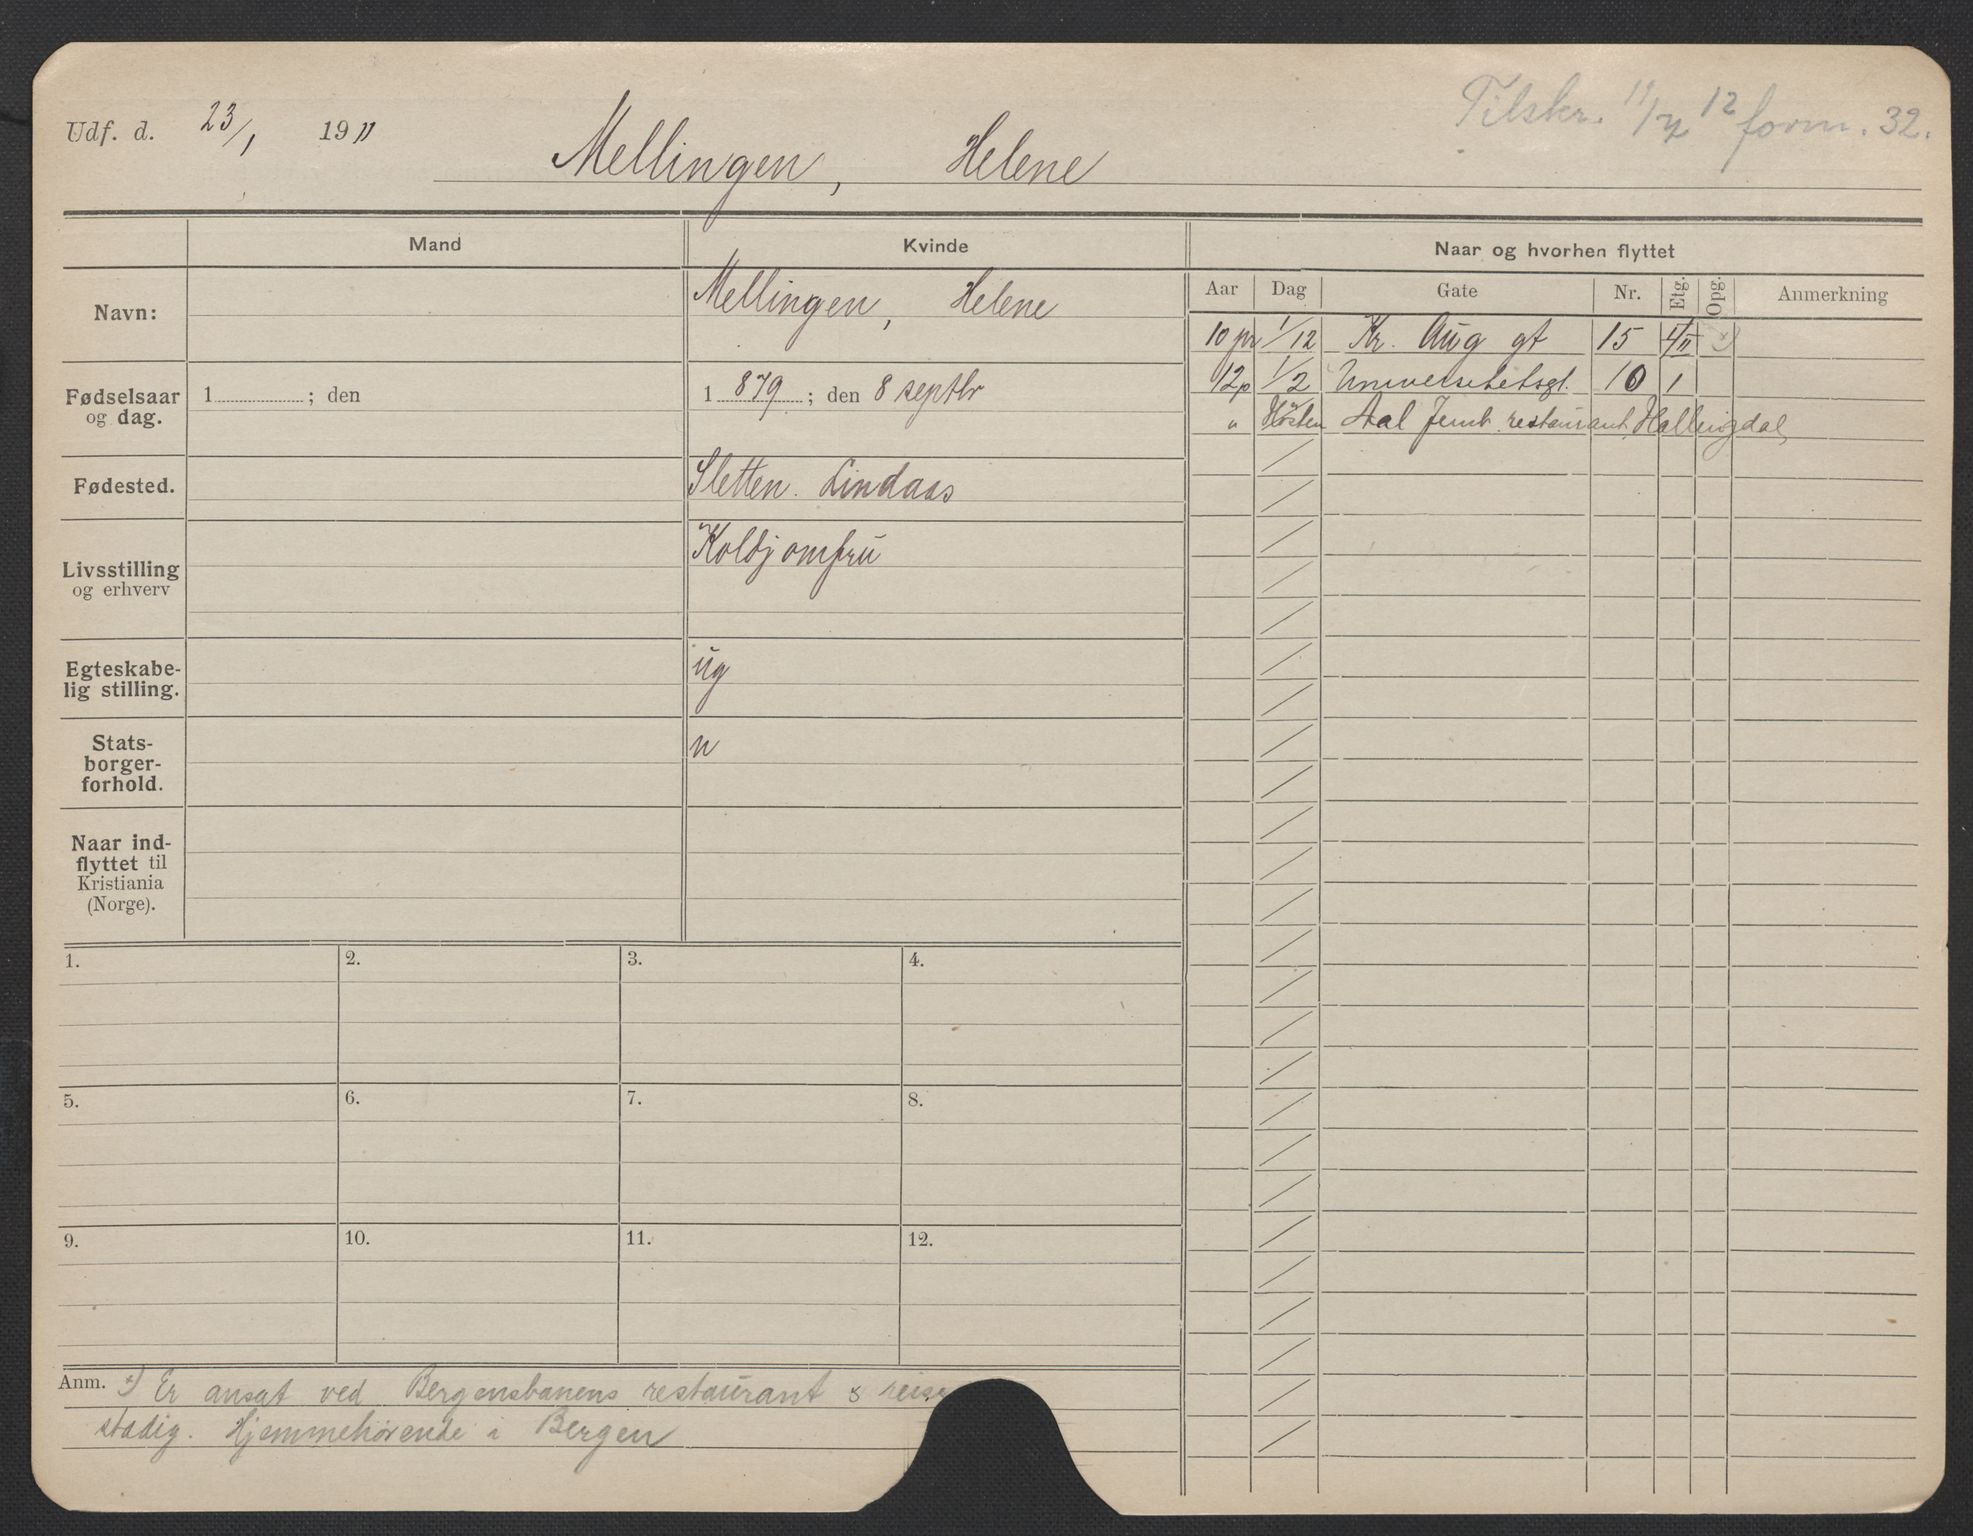 Udf. d. 23/1 1911
Mellingen, Helene
Tilskr. 11/7 12 form. 32.
Mand
Kvinde
Naar og hvorhen flyttet
Navn:
Mellingen, Helene
Fødselsaar og dag.
1 ; den
1 879 ; den 8 septbr
Fødested.
Sletten. Lindaas
Livsstilling og erhverv
Koldjomfru
Egteskabe-
lig stilling.
ug
Stats-
borger-
forhold.
n
Naar ind-
flyttet til
Kristiania
(Norge).
Aar Dag Gate Nr. Etg. Opg. Anmerkning
10 pr 1/12 Kr. Aug gt 15 4/II x)
12p 1/2 Universitetsgt. 10 1
" Høsten Aal Jernb. restaurant, Hallingdal,
1. 2. 3. 4.
5. 6. 7. 8.
9. 10. 11. 12.
Anm. x) Er ansat ved Bergensbanens restaurant & reise
stadig. Hjemmehørende i Bergen